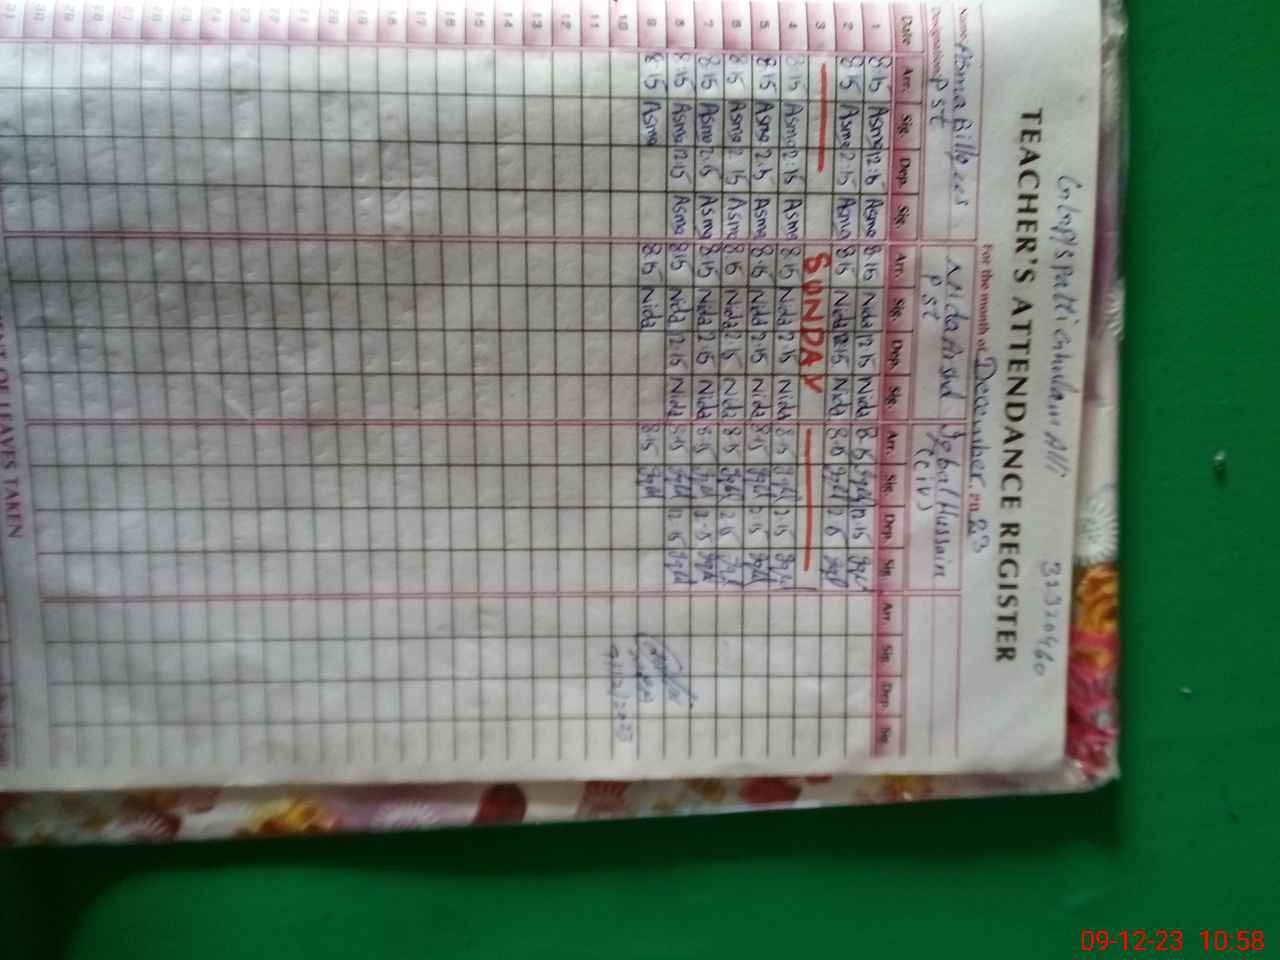 GGP/S Patti Ghulam Ali 31320460
TEACHER'S ATTENDANCE REGISTER
For the month of December 2023
Name Asma Bilqees Nida Arshd Iqbal Hussain
Designation PST PST (C iv)
Date Arr. Sig. Dep. Sig. Arr. Sig. Dep. Sig. Arr. Sig. Dep. Sig. Arr. Sig. Dep. Sig.
1 8:15 Asma 12:15 Asma 8:15 Nida 12:15 Nida 8:15 12:15
2 8:15 Asma 2:15 Asma 8:15 Nida 12:15 Nida 8:15 12:15
3 SUNDAY
4 8:15 Asma 2:15 Asma 8:15 Nida 2:15 Nida 8:15 2:15
5 8:15 Asma 2:15 Asma 8:15 Nida 2:15 Nida 8:15 2:15
6 8:15 Asma 2:15 Asma 8:15 Nida 2:15 Nida 8:15 2:15
7 8:15 Asma 2:15 Asma 8:15 Nida 2:15 Nida 8:15 2:15
8 8:15 Asma 12:15 Asma 8:15 Nida 12:15 Nida 8:15 12:15
9 8:15 Asma 8:15 Nida 8:15
10 7/12/2023
11
12
13
14
15
16
17
18
19
20
21
22
23
24
25
26
27
28
29
30
31
OF LEAVES TAKEN
09-12-23 10:58